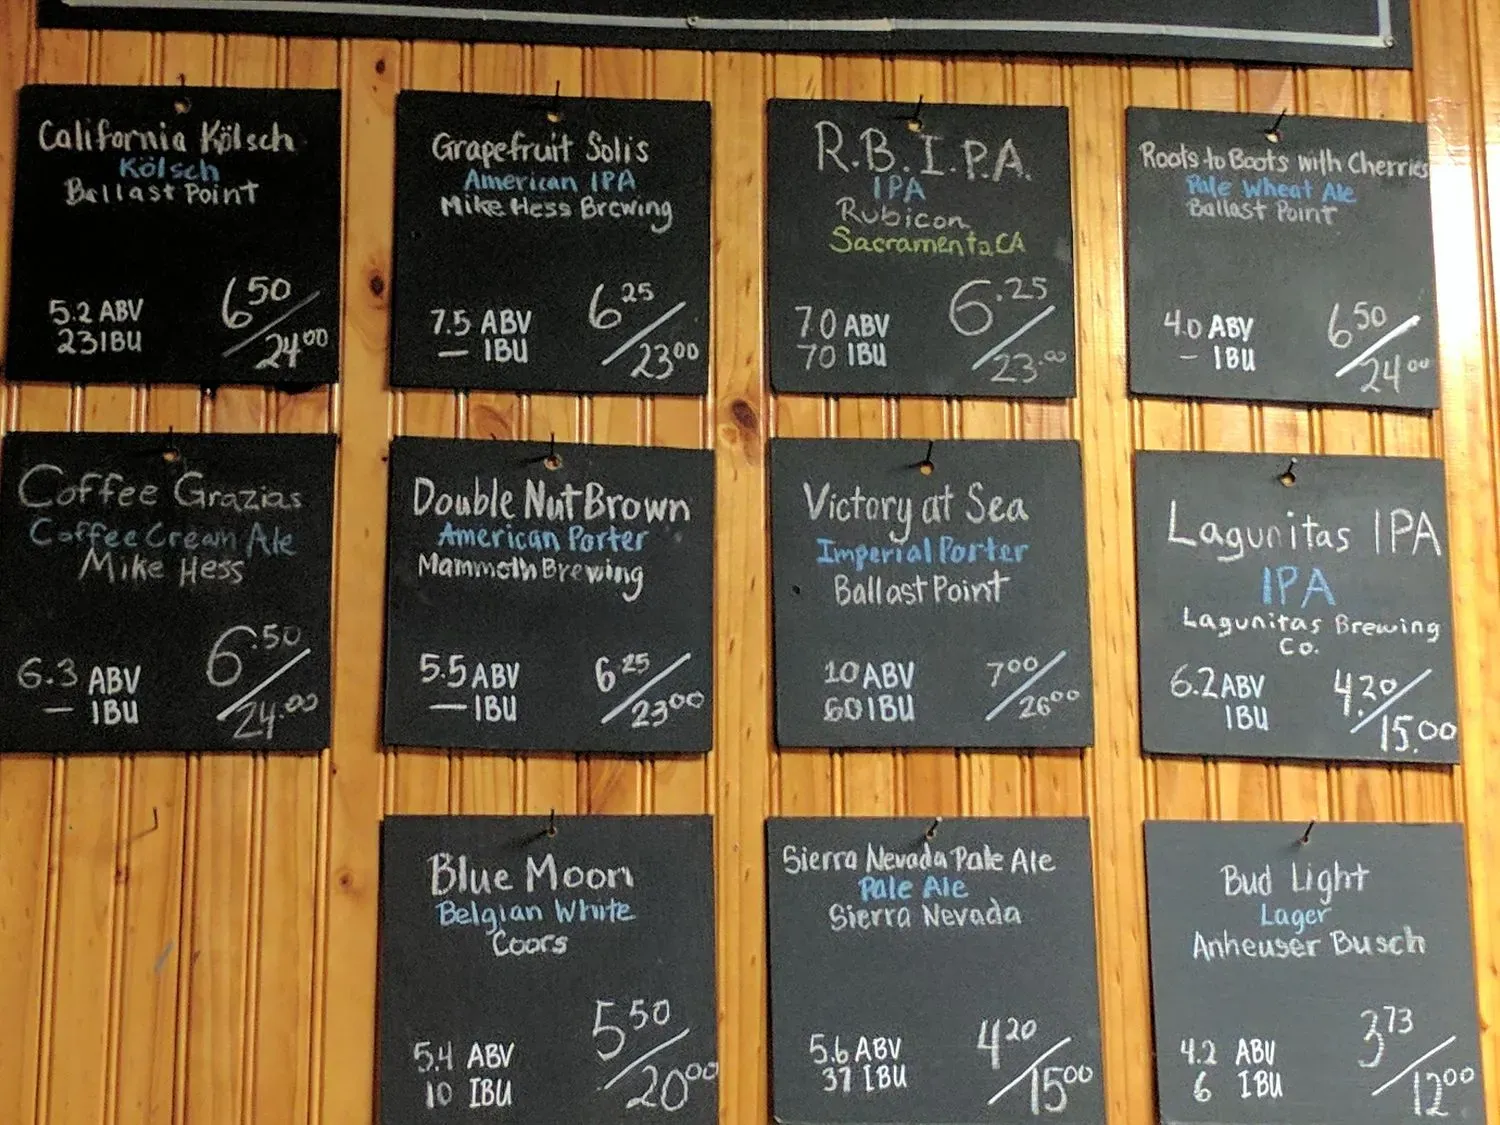 California Kölsch
Kölsch
Ballast Point
5.2 ABV
23 IBU
6 50
24 00
Grapefruit Solis
American IPA
Mike Hess Brewing
7.5 ABV
— IBU
6 25
23 00
R.B.I.P.A.
IPA
Rubicon
Sacramento, CA
7.0 ABV
70 IBU
6.25
23.00
Roots to Boots with Cherries
Pale Wheat Ale
Ballast Point
4.0 ABV
— IBU
6 50
24 00
Coffee Grazias
Coffee Cream Ale
Mike Hess
6.3 ABV
— IBU
6.50
24.00
Double Nut Brown
American Porter
Mammoth Brewing
5.5 ABV
— IBU
6 25
23 00
Victory at Sea
Imperial Porter
Ballast Point
10 ABV
60 IBU
7 00
26 00
Lagunitas IPA
IPA
Lagunitas Brewing
Co.
6.2 ABV
IBU
4.20
15.00
Blue Moon
Belgian White
Coors
5.4 ABV
10 IBU
5 50
20 00
Sierra Nevada Pale Ale
Pale Ale
Sierra Nevada
5.6 ABV
37 IBU
4 20
15 00
Bud Light
Lager
Anheuser Busch
4.2 ABV
6 IBU
3 73
12 00